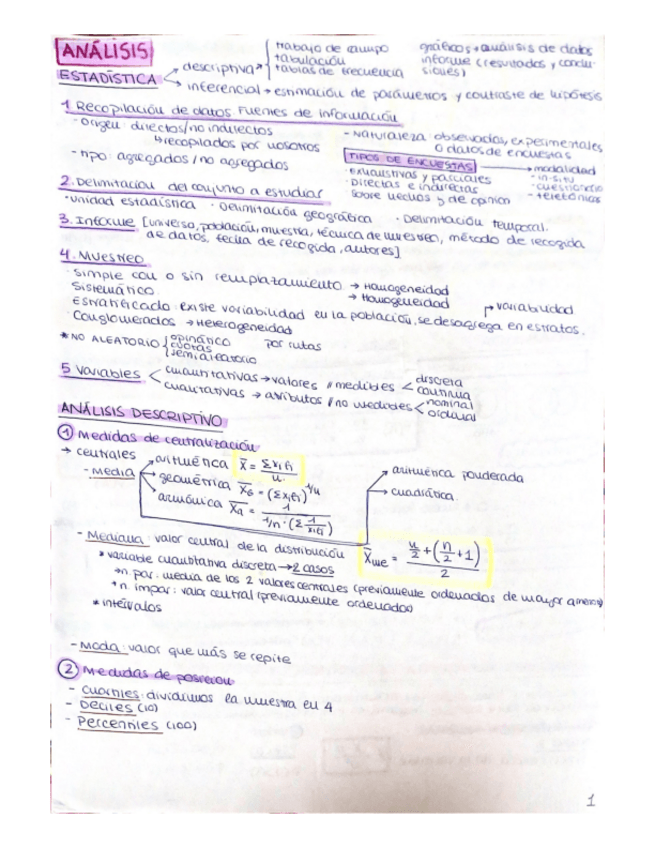 ANÁLISIS
ESTADÍSTICA
descriptiva
trabajo de campo
tabulación
tablas de frecuencia
gráficos + análisis de datos
informe (resultados y conclu-
siones)
inferencial → estimación de parámetros y contraste de hipótesis
1. Recopilación de datos. Fuentes de información
- Origen: directos/no indirectos
↳ recopilados por nosotros
- Tipo: agregados / no agregados
- Naturaleza: observados, experimentales
o datos de encuestas
TIPOS DE ENCUESTAS
· exhaustivas y parciales
· Directas e indirectas
· Sobre hechos y de opinión
→ modalidad
- in-situ
- cuestionario
- telefónicas
2. Delimitación del conjunto a estudiar
· unidad estadística · Delimitación geográfica · Delimitación temporal.
3. Informe [universo, población, muestra, técnica de muestreo, método de recogida
de datos, fecha de recogida, autores]
4. Muestreo
· Simple con o sin remplazamiento → Homogeneidad
· Sistemático → Homogeneidad
· Estratificado: existe variabilidad en la población, se desagrega en estratos. → variabilidad
· Conglomerados → Heterogeneidad
* NO ALEATORIO { opinático
cuotas
semialeatorio
por rutas
5 Variables
cuantitativas → valores // medibles < discreta
continua
cualitativas → atributos // no medibles < nominal
ordinal
ANÁLISIS DESCRIPTIVO
① Medidas de centralización
→ centrales
- Media
aritmética X̄ = Σxifi / n
geométrica X̄G = (Σxifi)^1/n
armónica X̄A = 1 / (1/n · (Σ 1/xifi))
→ aritmética ponderada
→ cuadrática
- Mediana: valor central de la distribución
X̄me = (n/2 + (n/2 + 1)) / 2
* variable cuantitativa discreta → 2 casos
+ n par: media de los 2 valores centrales (previamente ordenados de mayor a menor)
+ n impar: valor central (previamente ordenado)
* intervalos
- Moda: valor que más se repite
② Medidas de posición
- Cuartiles: dividimos la muestra en 4
- Deciles (10)
- Percentiles (100)
1